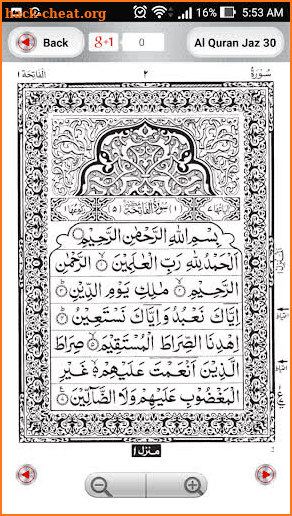 16% 5:53 AM
Back 8+1 0 Al Quran Jaz 30
الفاتحة ١ ٢ سورة
(١) سورة الفاتحة (٥)
بِسْمِ اللّٰهِ الرَّحْمٰنِ الرَّحِيْمِ
اَلْحَمْدُ لِلّٰهِ رَبِّ الْعٰلَمِيْنَ ۙ﴿١﴾ الرَّحْمٰنِ
الرَّحِيْمِ ۙ﴿٢﴾ مٰلِكِ يَوْمِ الدِّيْنِ ؕ﴿٣﴾
اِيَّاكَ نَعْبُدُ وَاِيَّاكَ نَسْتَعِيْنُ ؕ﴿٤﴾
اِهْدِنَا الصِّرَاطَ الْمُسْتَقِيْمَ ۙ﴿٥﴾ صِرَاطَ
الَّذِيْنَ اَنْعَمْتَ عَلَيْهِمْ ۙ﴿٦﴾ غَيْرِ
الْمَغْضُوْبِ عَلَيْهِمْ وَلَا الضَّآلِّيْنَ ﴿٧﴾
منزل ١
2
hack-cheat.org